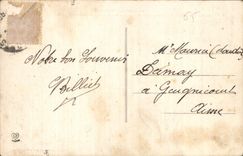 Notre bon Souvenir
Billiet
Mr Maurice
Damay
a Guignicourt
Aisne